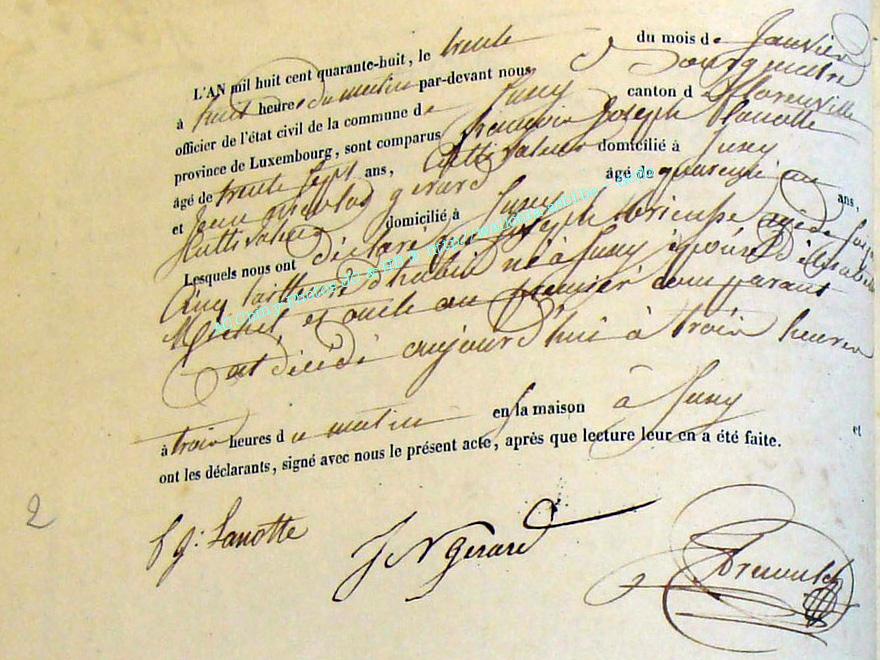 L'AN mil huit cent quarante-huit, le trente du mois de Janvier
à huit heures du matin par-devant nous, Bourgmestre
officier de l'état civil de la commune de Jusy canton de Florenville
province de Luxembourg, sont comparus françois Joseph Lanotte
âgé de trente sept ans, Cultivateur domicilié à Jusy
et Jean nicolas gerard âgé de quarente un ans,
Cultivateur domicilié à Jusy
Lesquels nous ont déclaré que Joseph âgé de
Cinq né à Jusy époux d'
Michel, et oncle au premier comparant
est décédé aujourd'hui à trois heures
à trois heures du matin en la maison à Jusy et
ont les déclarants, signé avec nous le présent acte, après que lecture leur en a été faite.
2
f j: Lanotte
J N gerard